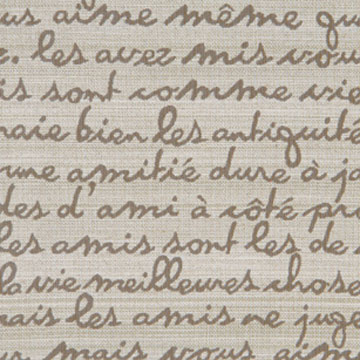 us aime même qu
. les avez mis vous
is sont comme vie
aie bien les antiquité
une amitié dure à ja
des d'ami à côté pr
les amis sont les de
la vie meilleures chose
mais les amis ne juge
mais vous aim